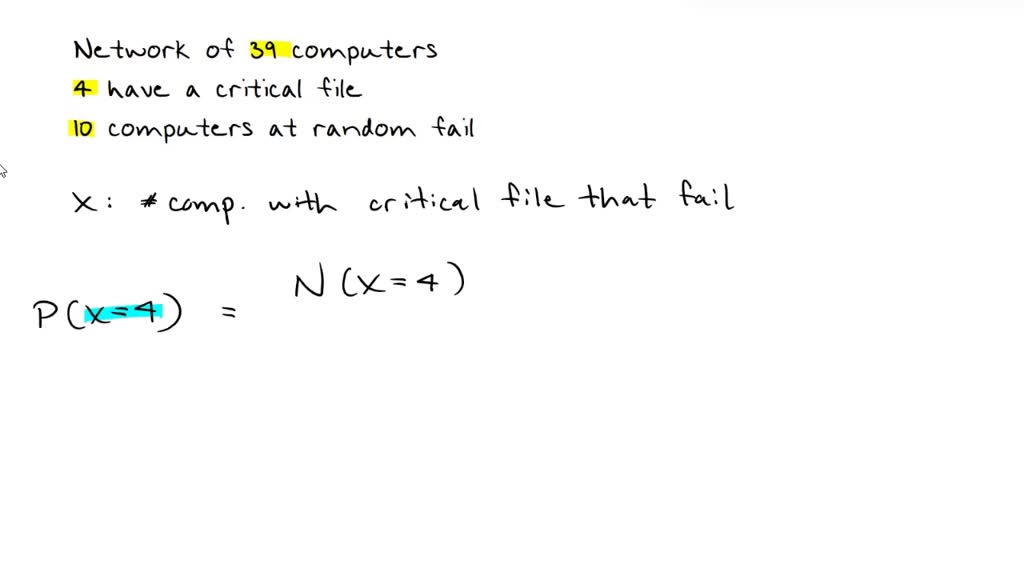 Network of 39 computers
4 have a critical file
10 computers at random fail
X: # comp. with critical file that fail
N(X=4)
P(X=4) =